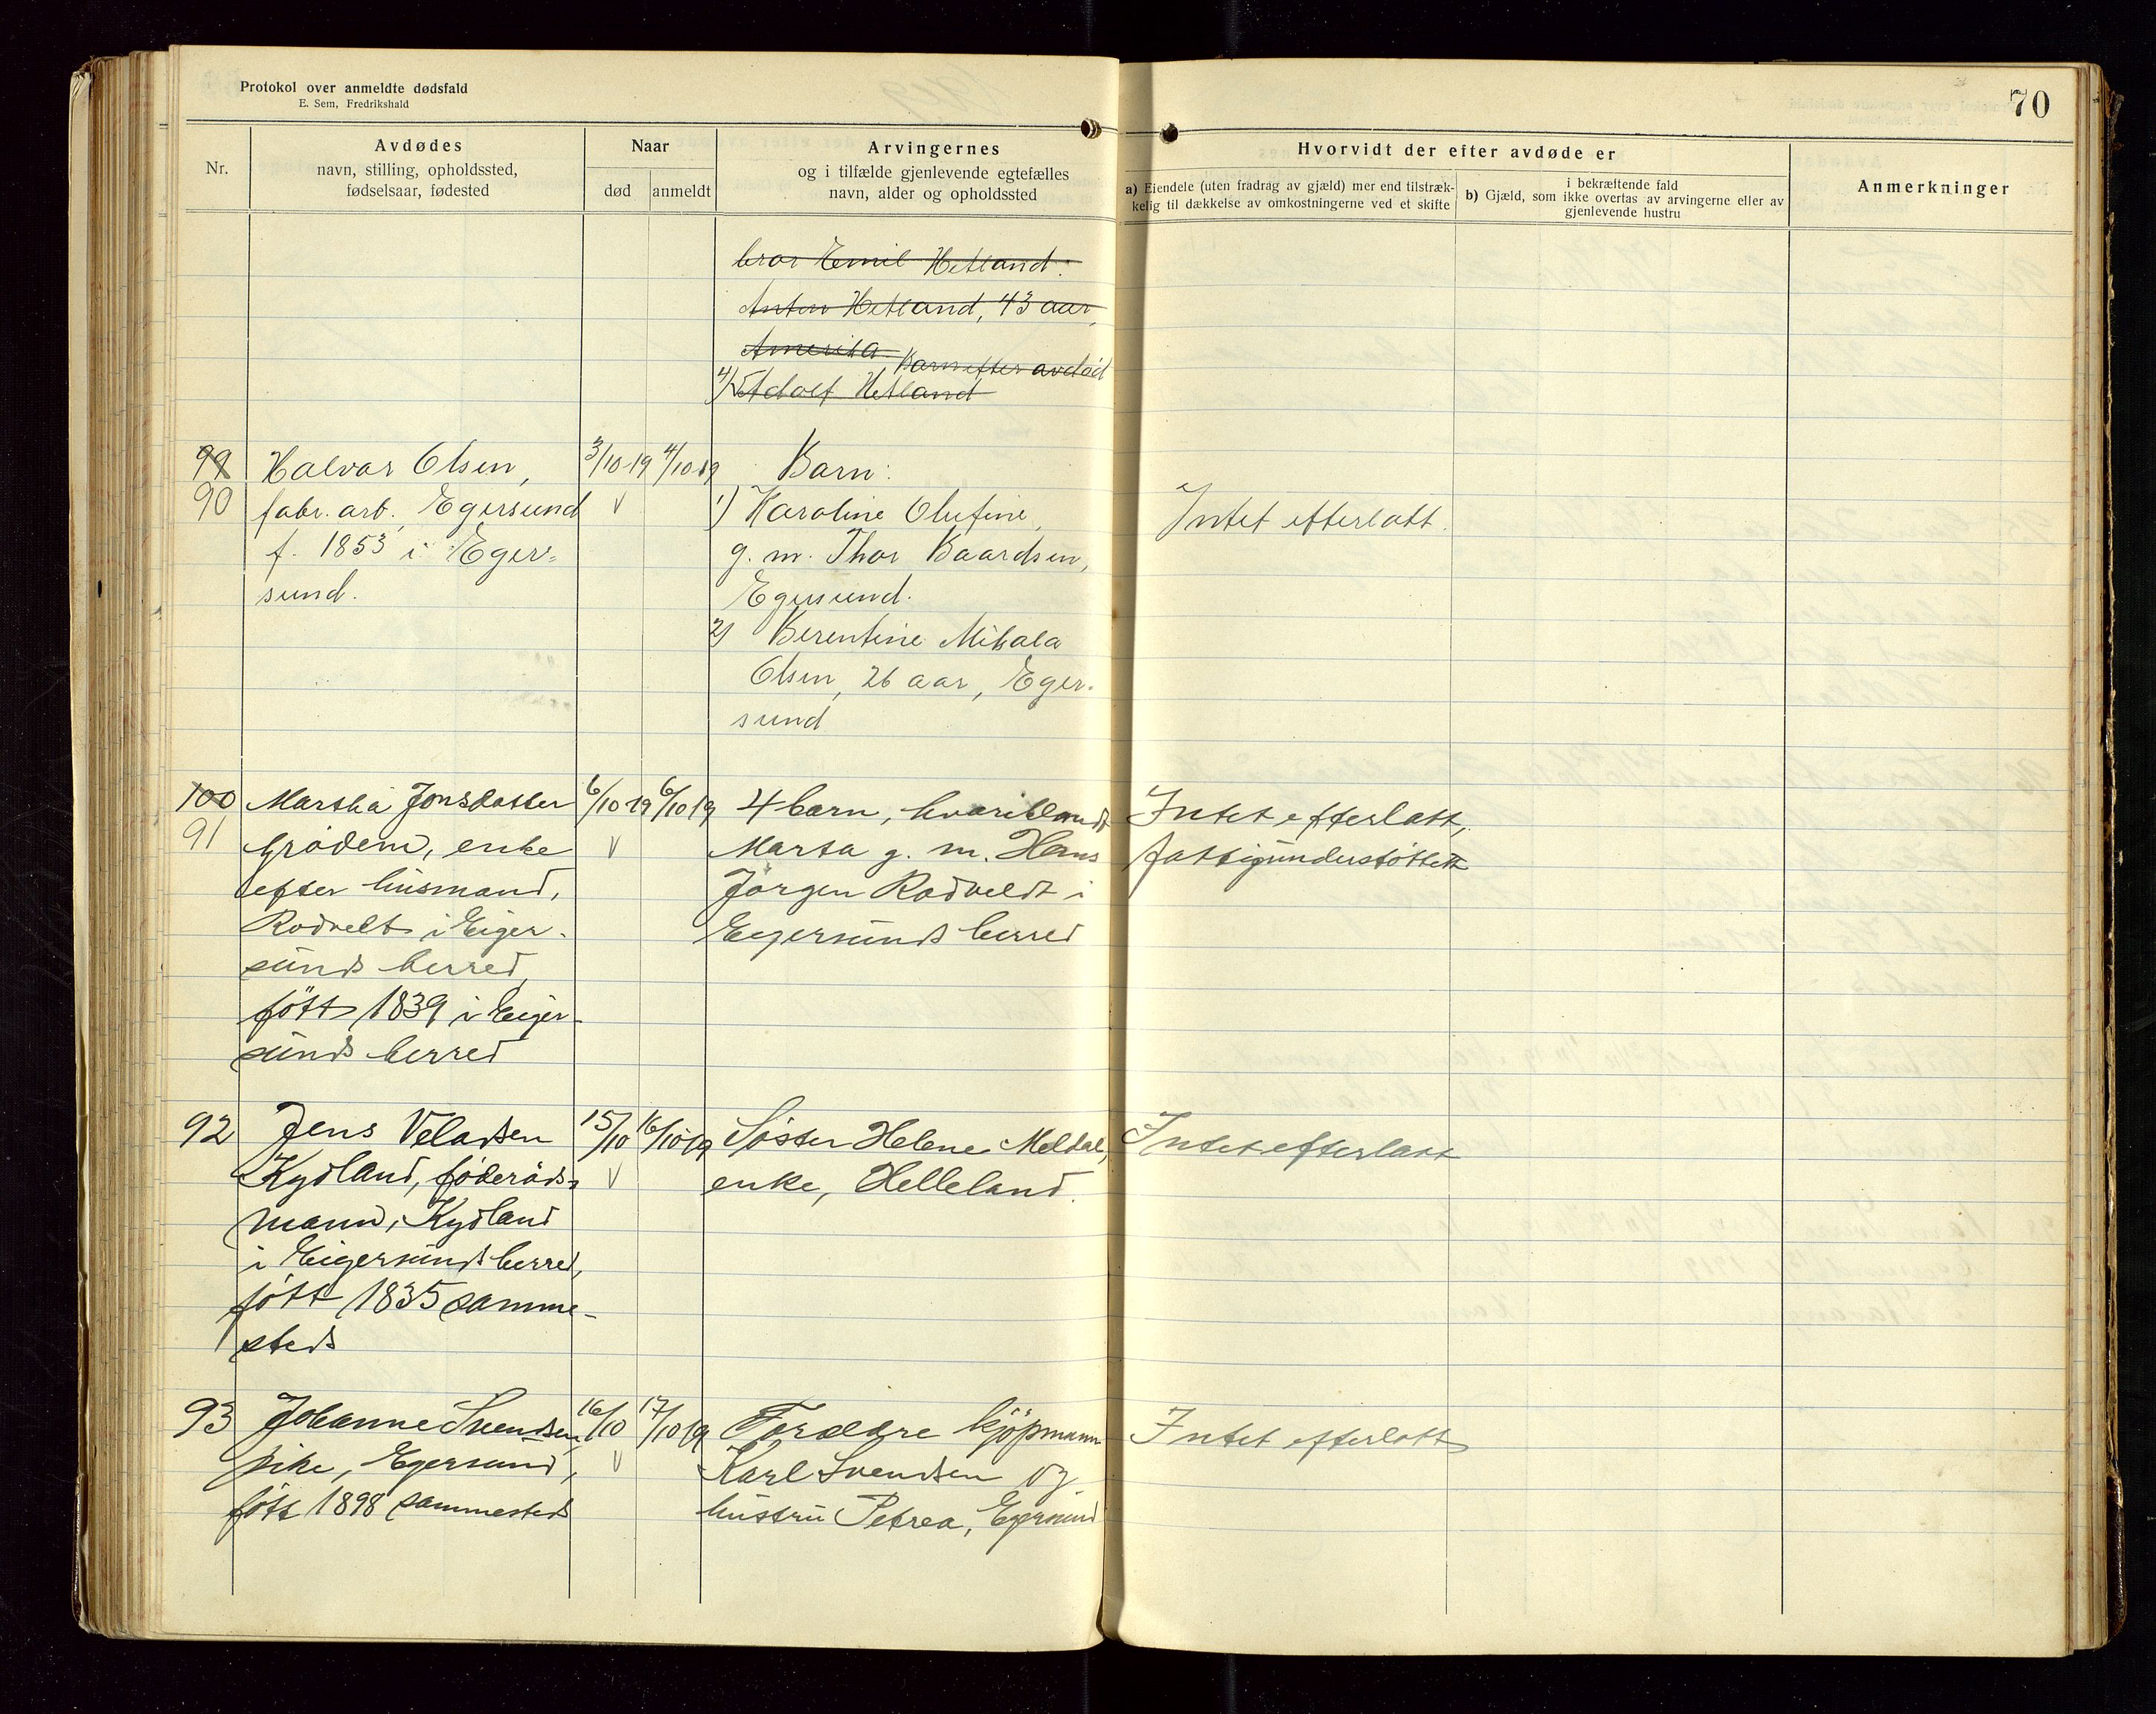 Protokol over anmeldte dødsfald
E. Sem, Fredrikshald
70
Nr.
Avdødes
navn, stilling, opholdssted,
fødselsaar, fødested
Naar
død
anmeldt
Arvingernes
og i tilfælde gjenlevende egtefælles
navn, alder og opholdssted
Hvorvidt der efter avdøde er
a) Eiendele (uten fradrag av gjæld) mer end tilstræk-
kelig til dækkelse av omkostningerne ved et skifte
i bekræftende fald
b) Gjæld, som ikke overtas av arvingerne eller av
gjenlevende hustru
Anmerkninger
bror Emil Hetland:
Anton Hetland, 43 aar,
Amerika.
Barn efter avdød
4) Adolf Hetland
99
90
Halvar Olsen,
fabr. arb. Egersund
f. 1853 i Eger=
sund.
3/10 19
4/10 19
V
Barn:
1) Karoline Olufine,
g. m. Thor Baardsen,
Egersund.
2) Berentine Mikala
Olsen, 26 aar, Eger-
sund
Intet efterlatt.
100
91
Martha Jonsdatter
Grødem, enke
efter husmand,
Rodvelt i Eiger-
sunds herred,
født 1839 i Eiger-
sunds herred
6/10 19
6/10 19
V
4 barn, hvoriblandt
Marta g. m. Hans
Jørgen Rodveldt i
Eigersunds herred
Intet efterlatt,
fattigunderstøttet
92
Jens Veladsen
Kydland, føderåds-
mann, Kydland
i Eigersunds herred,
født 1835 samme-
steds
15/10
16/10 19
V
Søster Helene Meldal,
enke, Helleland.
Intet efterlatt
93
Johanne Svendsen,
pike, Egersund,
født 1898 sammesteds
16/10
17/10 19
V
Forældre kjøpmann
Karl Svendsen og
hustru Petrea, Egersund
Intet efterlatt